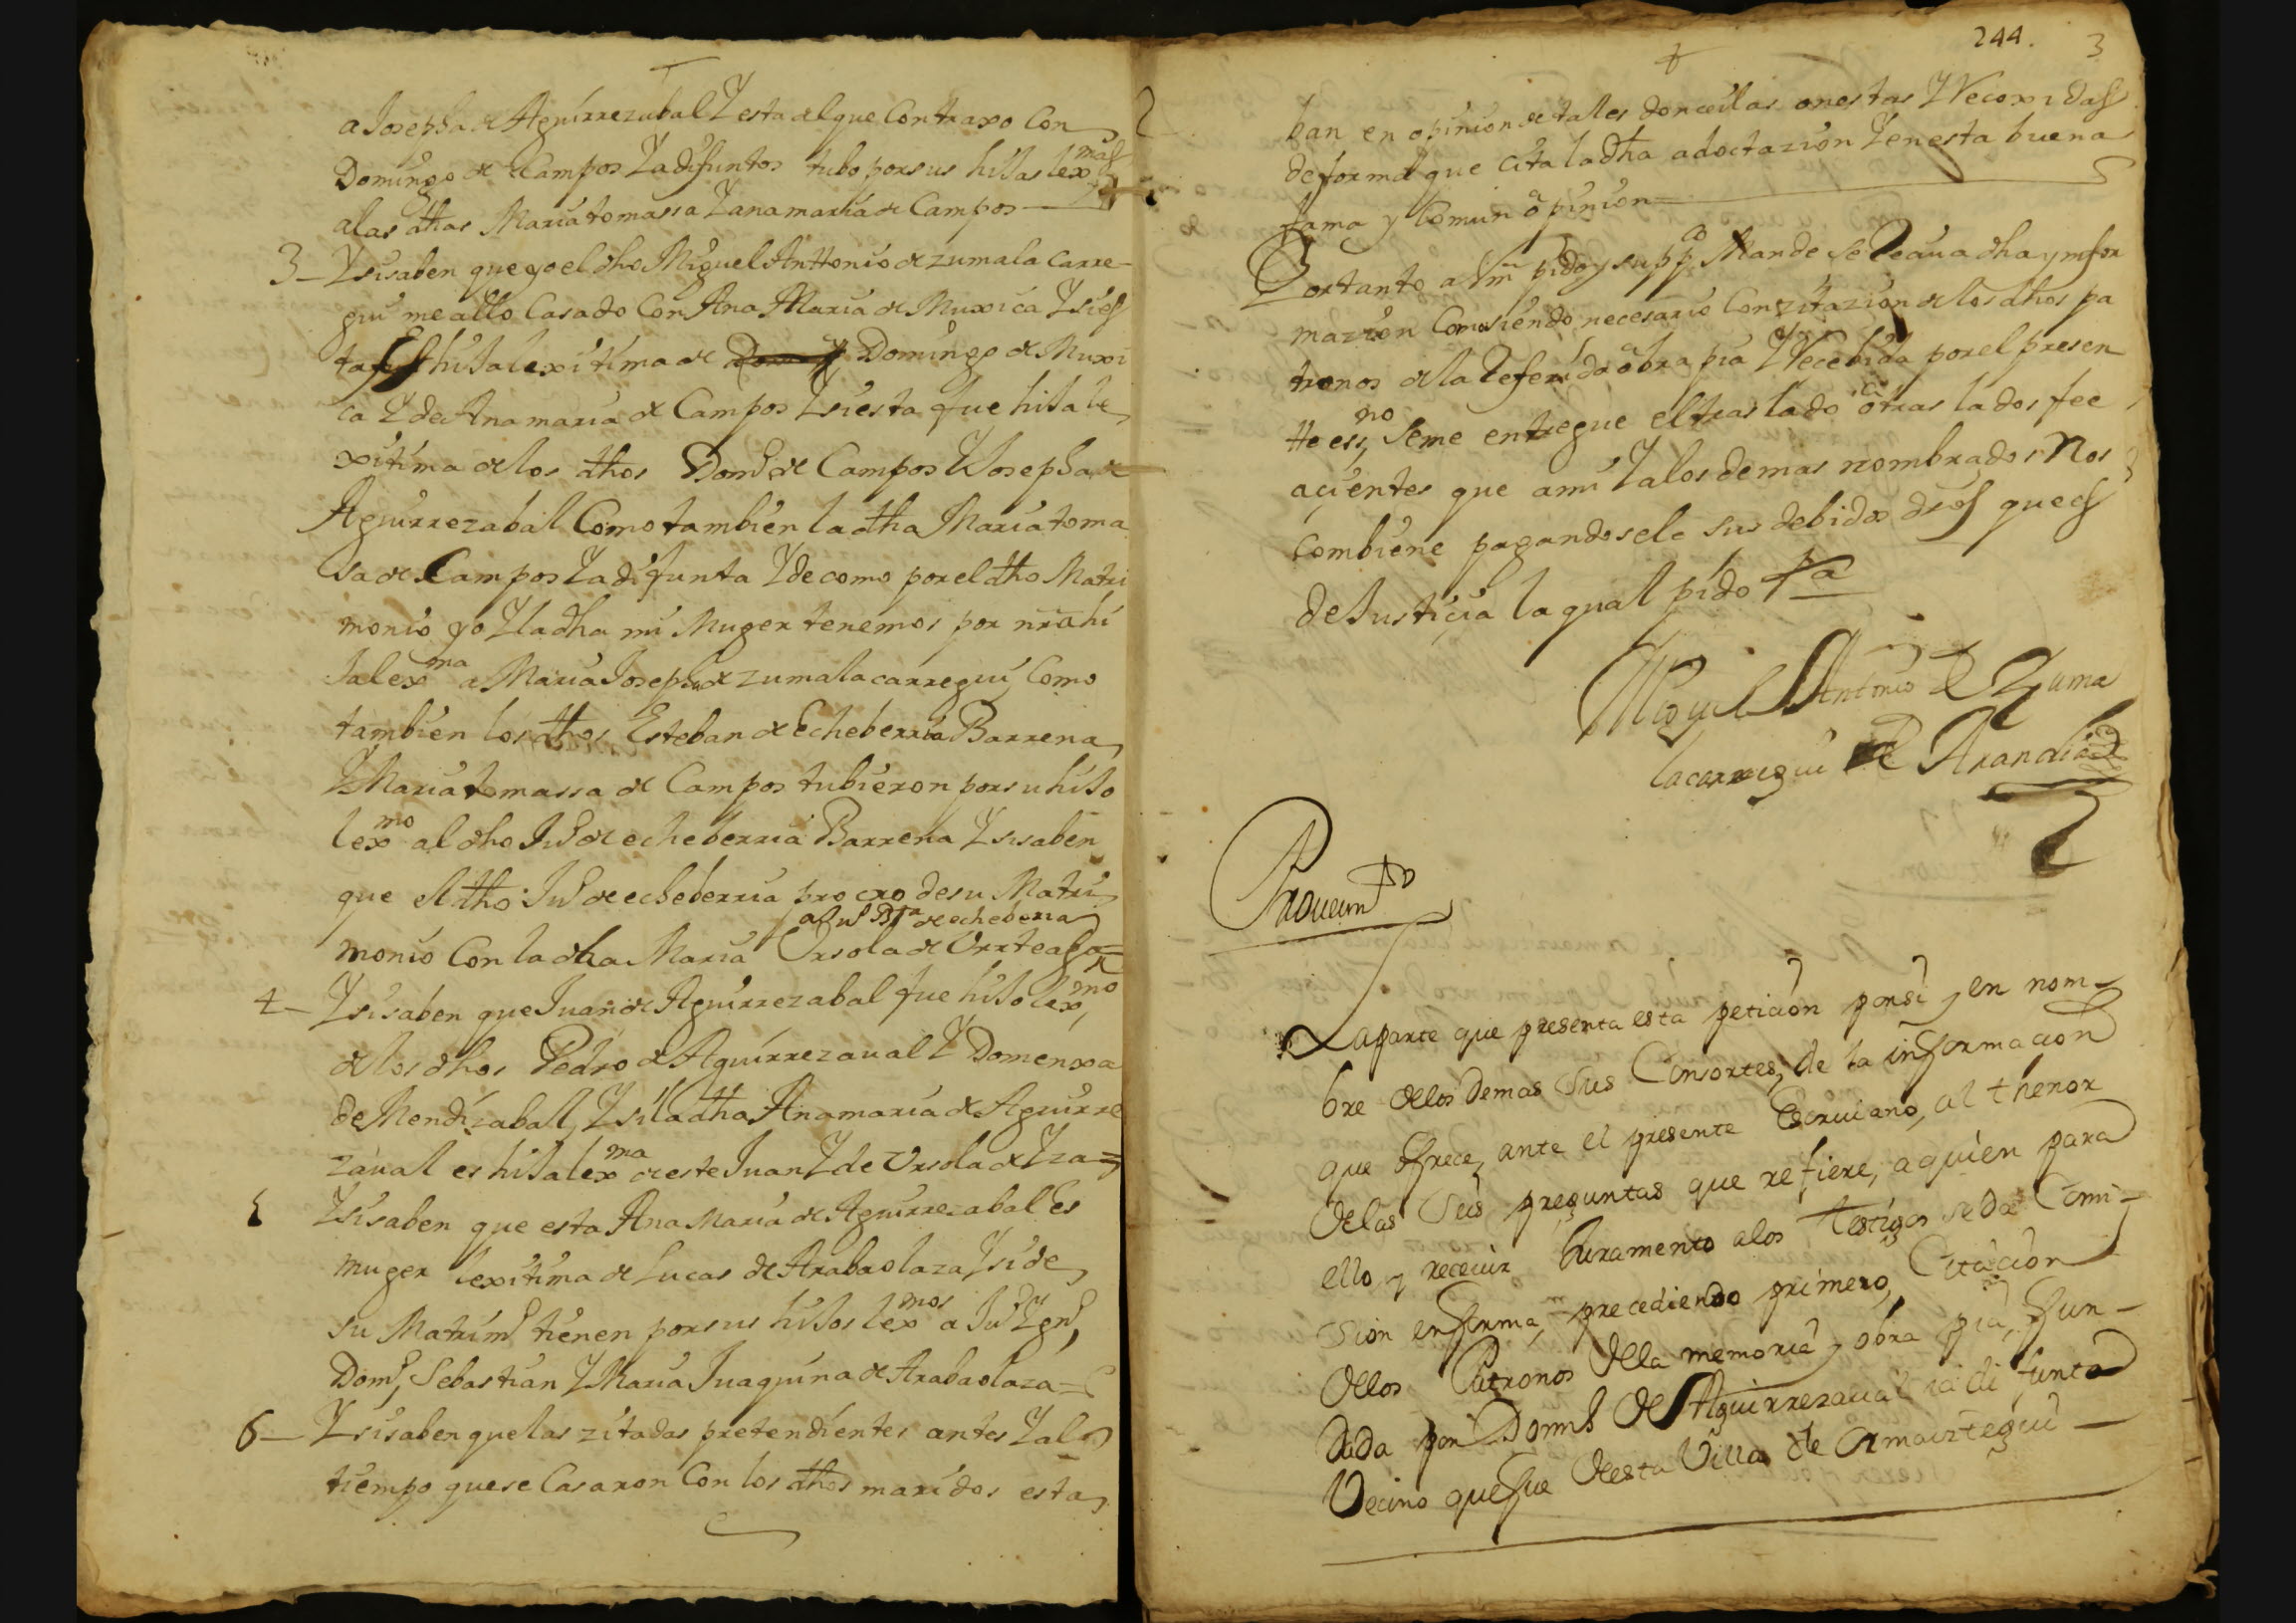 a Josepha de Aguirrezabal Y esta del que Contraxo Con
Domingo de Campos Ya difuntos tubo por sus hijas lex^mas
a las dhas Maria tomassa Y ana maria de Campos
3 - Y si saben que yo el dho Miguel Anttonio de zumala carre-
gui me allo Casado Con Ana Maria de Muxica Y si es
ta es hija lexitima de Domingo de Muxi
ca Y de Ana maria de Campos Y si esta fue hija le
xitima de los dhos Dom^o de Campos Y Josepha de
Aguirrezabal Como tambien la dha Maria toma
sa de Campos Ya difunta Y de como por el dho Matri
monio yo Y la dha mi Muger tenemos por nra hi
ja lex^ma a Maria Josepha de zumalacarregui, Como
tambien los dhos Esteban de Echeberria Barrena
Y Maria tomassa de Campos tubieron por su hijo
lex^mo al dho Ju^o de echeberria Barrena Y si saben
que el dho Ju^o de echeberria procreo de su Matri
a Ju^o Bta de echeberria
monio Con la dha Maria Ursola de Urrteaga =
4 - Y si saben que Juan de Aguirrezabal fue hijo lex^mo
de los dhos Pedro de Aguirrezaual Y Domenxa
de Mendizabal, Y si la dha Ana maria de Aguirre
zaual es hija lex^ma de este Juan Y de Ursola de Yza =
5 Y si saben que esta Ana Maria de Aguirrezabal Es
muger lexitima de Lucas de Arabaolaza, Y si de
su Matrim^o tienen por sus hijos lex^mos a Ju^o Ygn^o,
Dom^o, Sebastian Y Maria Juaquina de Arabaolaza =
6 - Y si saben que las zitadas pretendientes antes Y al
tiempo que se Casaron Con los dhos maridos esta
2
244. 3
ban en opinion de tales doncellas onestas Y Recoxidas
de forma que cita la dha adoctazion Y en esta buena
fama y Comun opinion
Por tanto a Vm pido y supp^co Mande se Reciua dha ynfor
mazion Como siendo necesario Con zitazion de los dhos pa
tronos de la Referida obra pia Y Recebida por el presen
tte ess^no, se me entregue el traslado o traslados fee
acientes que a mi Y a los demas nombrados Nos
combiene pagandosele sus debidos dros que es
de Justicia la qual pido &^a
Miguel Antonio de Zuma
lacarregui de Arandia
Proueim^to
La parte que presenta esta peticion por si y en nom-
bre de los Demas sus Consortes, de la informacion
que ofrece, ante el presente Escriuano, al thenor
de las seis preguntas que refiere, a quien para
ello y receuir Juramento a los Testigos se da Comi-
sion en forma, precediendo primero, Citacion
de los Patronos de la memoria y obra pia, fun-
dada por Dom^o de Aguirrezaual ia difunto
Vecino que fue de esta Villa de Ormaiztegui -